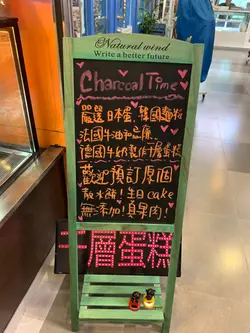 Natural wind
Write a better future.
Charcoal Time
嚴選日本蛋,韓國麵粉
法國牛油和忌廉
德國牛奶製作千層蛋糕
歡迎預訂原個
散水餅!生日cake
無添加!真果肉!
千層蛋糕